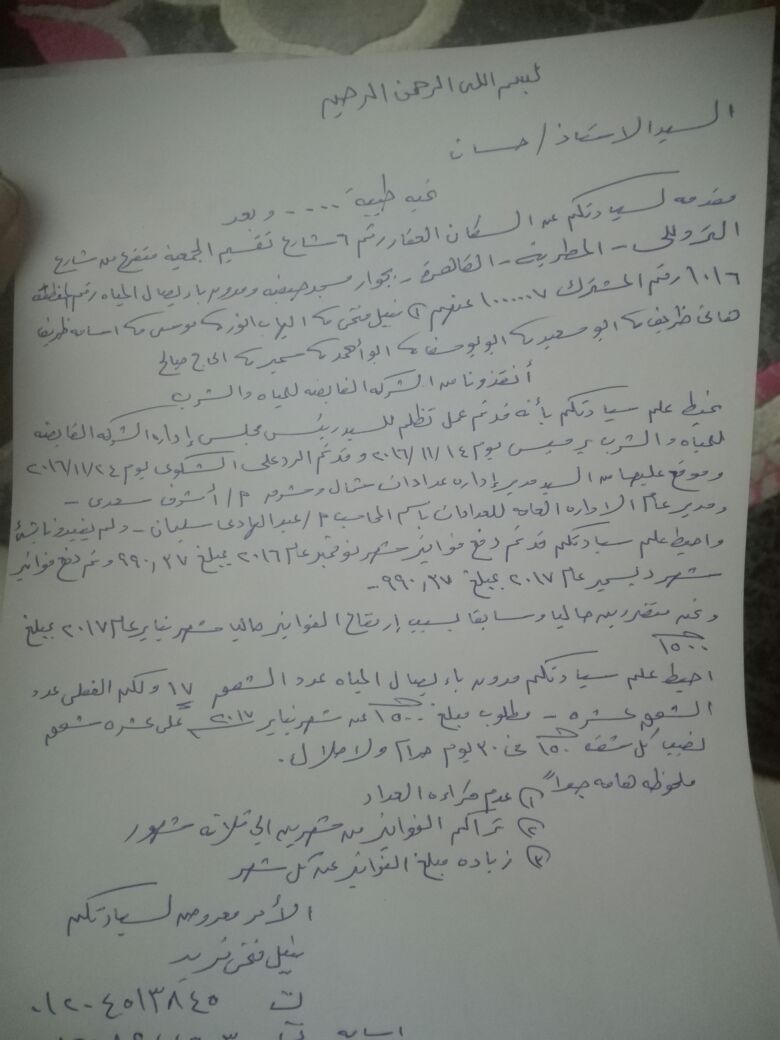 بسم الله الرحمن الرحيم
السيد الاستاذ / حسان
تحيه طيبة .... وبعد
مقدمه لسيادتكم عن السكان العقار رقم ٦ شارع تقسيم الجمعية متفرع من شارع
التروللى - المطرية - القاهرة - بجوار مسجد ومدون باءيصال المياه رقم المنطقة
٦٠١٦ رقم المشترك ١٠٠٠٠٠٧ عنهم ① نبيل فتحى ايهاب انور موسى اسامه ظريف
هانى ظريف ابو سعيد ابو يوسف ابو أحمد سمير الحاج صالح
أنقذونا من الشركه القابضه للمياه والشرب
نحيط علم سيادتكم بأنه قد تم عمل تظلم للسيد رئيس مجلس إداره الشركه القابضه
للمياه والشرب يوم ٢٠١٦/١١/١٤ وقد تم الرد على الشكوى يوم ٢٠١٦/١١/٢٤
وموقع عليها من السيد مدير إداره عدادات شمال وشرق م / أشرف سعدى -
ومدير عام الاداره العامه للعدادات باسم المحاسب م / عبد الهادى سليمان - ولم يفيدونا شئ
واحيط علم سيادتكم قد تم دفع فواتير شهر نوفمبر عام ٢٠١٦ بمبلغ ٩٩٠,٣٧ وتم دفع فواتير
شهر ديسمبر عام ٢٠١٧ بمبلغ ٩٩٠,٣٧ -
ونحن متضررين حاليا وسابقا بسبب إرتفاع الفواتير حاليا شهر يناير عام ٢٠١٧ بمبلغ
١٥٠٠
احيط علم سيادتكم مدون باءيصال المياه عدد الشقق ١٧ ولكن الفعلى عدد
الشقق عشره - مطلوب مبلغ ١٥٠٠ عن شهر يناير ٢٠١٧ على عشره شقق
نصيب كل شقه ١٥٠ فى ٣٠ يوم حرام ولا حلال .
ملحوظه هامه جداً ① عدم قراءه العداد
② تراكم الفواتير من شهرين الى ثلاثه شهور
③ زياده مبلغ الفواتير عن كل شهر
الأمر معروض لسيادتكم
نبيل فتحى فريد
ت ٠١٢٠٤٥١٣٨٤٥
اسامه ت